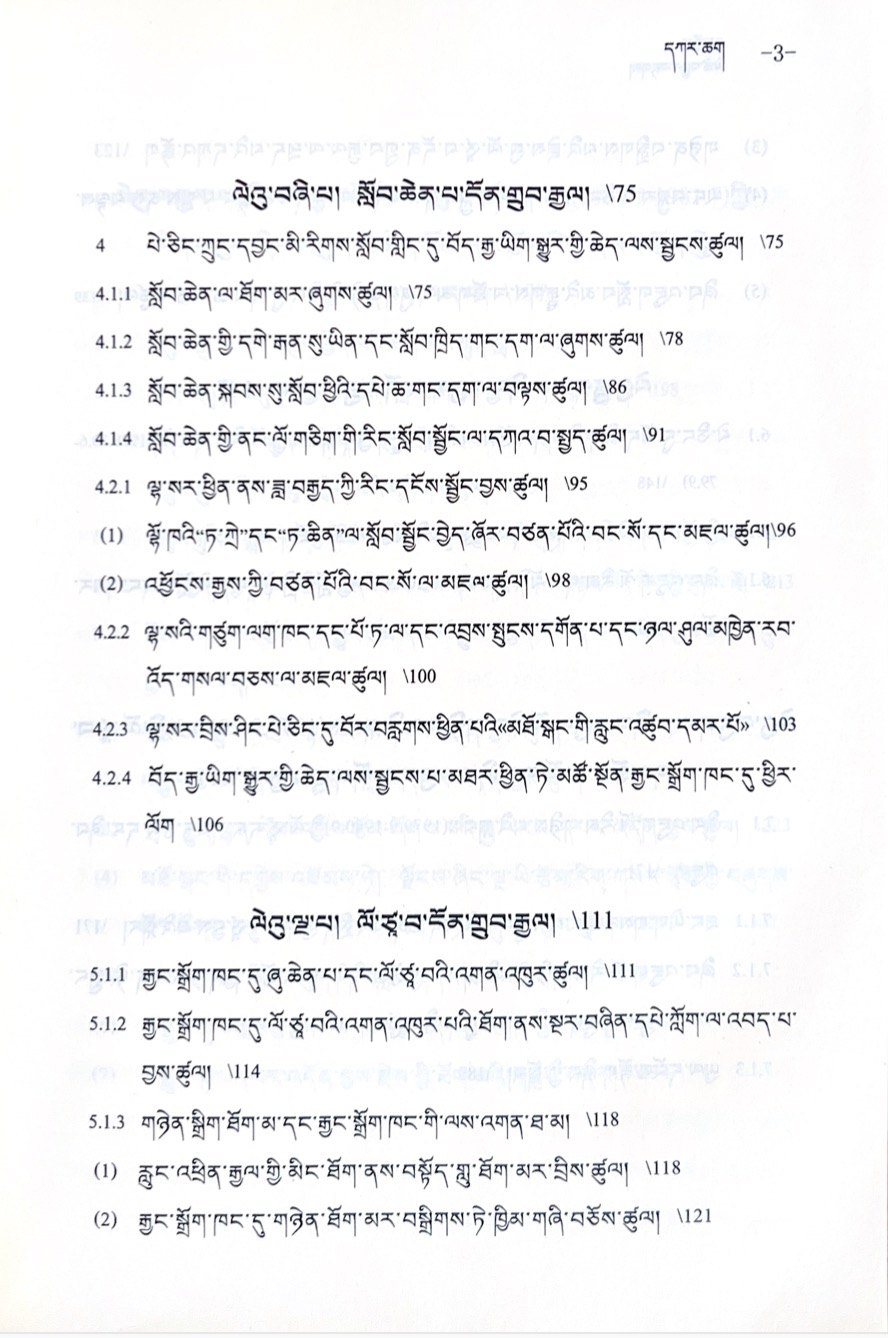 དཀར་ཆག -3-
ལེའུ་བཞི་པ། སློབ་ཆེན་པ་དོན་གྲུབ་རྒྱལ། \75
4 པེ་ཅིང་ཀྲུང་དབྱང་མི་རིགས་སློབ་གླིང་དུ་བོད་རྒྱ་ཡིག་སྒྱུར་གྱི་ཆེད་ལས་སྦྱངས་ཚུལ། \75
4.1.1 སློབ་ཆེན་ལ་ཐོག་མར་ཞུགས་ཚུལ། \75
4.1.2 སློབ་ཆེན་གྱི་དགེ་རྒན་སུ་ཡིན་དང་སློབ་ཁྲིད་གང་དག་ལ་ཞུགས་ཚུལ། \78
4.1.3 སློབ་ཆེན་སྐབས་སུ་སློབ་ཕྱིའི་དཔེ་ཆ་གང་དག་ལ་བལྟས་ཚུལ། \86
4.1.4 སློབ་ཆེན་གྱི་ནང་ལོ་གཅིག་གི་རིང་སློབ་སྦྱོང་ལ་དཀའ་བ་སྤྱད་ཚུལ། \91
4.2.1 ལྷ་སར་ཕྱིན་ནས་ཟླ་བརྒྱད་ཀྱི་རིང་དངོས་སྦྱོང་བྱས་ཚུལ། \95
(1) ལྷོ་ཁའི“ཏ་ཀྲེ”དང“ཏ་ཆིན”ལ་སློབ་སྦྱོང་བྱེད་ཞོར་བཙན་པོའི་བང་སོ་དང་མཇལ་ཚུལ།\96
(2) འཕྱོངས་རྒྱས་ཀྱི་བཙན་པོའི་བང་སོ་ལ་མཇལ་ཚུལ། \98
4.2.2 ལྷ་སའི་གཙུག་ལག་ཁང་དང་པོ་ཏ་ལ་དང་འབྲས་སྤུངས་དགོན་པ་དང་ཉལ་ཤུལ་མཁྱེན་རབ་
འོད་གསལ་བཅས་ལ་མཇལ་ཚུལ། \100
4.2.3 ལྷ་སར་བྲིས་ཤིང་པེ་ཅིང་དུ་བོར་བརླགས་ཕྱིན་པའི《མཐོ་སྒང་གི་རླུང་འཚུབ་དམར་པོ》 \103
4.2.4 བོད་རྒྱ་ཡིག་སྒྱུར་གྱི་ཆེད་ལས་སྦྱངས་པ་མཐར་ཕྱིན་ཏེ་མཚོ་སྔོན་རྒྱང་སྒྲོག་ཁང་དུ་ཕྱིར་
ལོག \106
ལེའུ་ལྔ་པ། ལོ་ཙཱ་བ་དོན་གྲུབ་རྒྱལ། \111
5.1.1 རྒྱང་སྒྲོག་ཁང་དུ་ཞུ་ཆེན་པ་དང་ལོ་ཙཱ་བའི་འགན་འཁུར་ཚུལ། \111
5.1.2 རྒྱང་སྒྲོག་ཁང་དུ་ལོ་ཙཱ་བའི་འགན་འཁུར་པའི་ཐོག་ནས་སྔར་བཞིན་དཔེ་ཀློག་ལ་འབད་པ་
བྱས་ཚུལ། \114
5.1.3 གཉེན་སྒྲིག་ཐོག་མ་དང་རྒྱང་སྒྲོག་ཁང་གི་ལས་འགན་ཐ་མ། \118
(1) རླུང་འཕྲིན་རྒྱལ་གྱི་མིང་ཐོག་ནས་བསྟོད་གླུ་ཐོག་མར་བྲིས་ཚུལ། \118
(2) རྒྱང་སྒྲོག་ཁང་དུ་གཉེན་ཐོག་མར་བསྒྲིགས་ཏེ་ཁྱིམ་གཞི་བཅོས་ཚུལ། \121